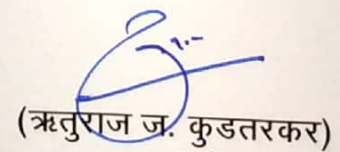 (ऋतुराज ज. कुडतरकर)